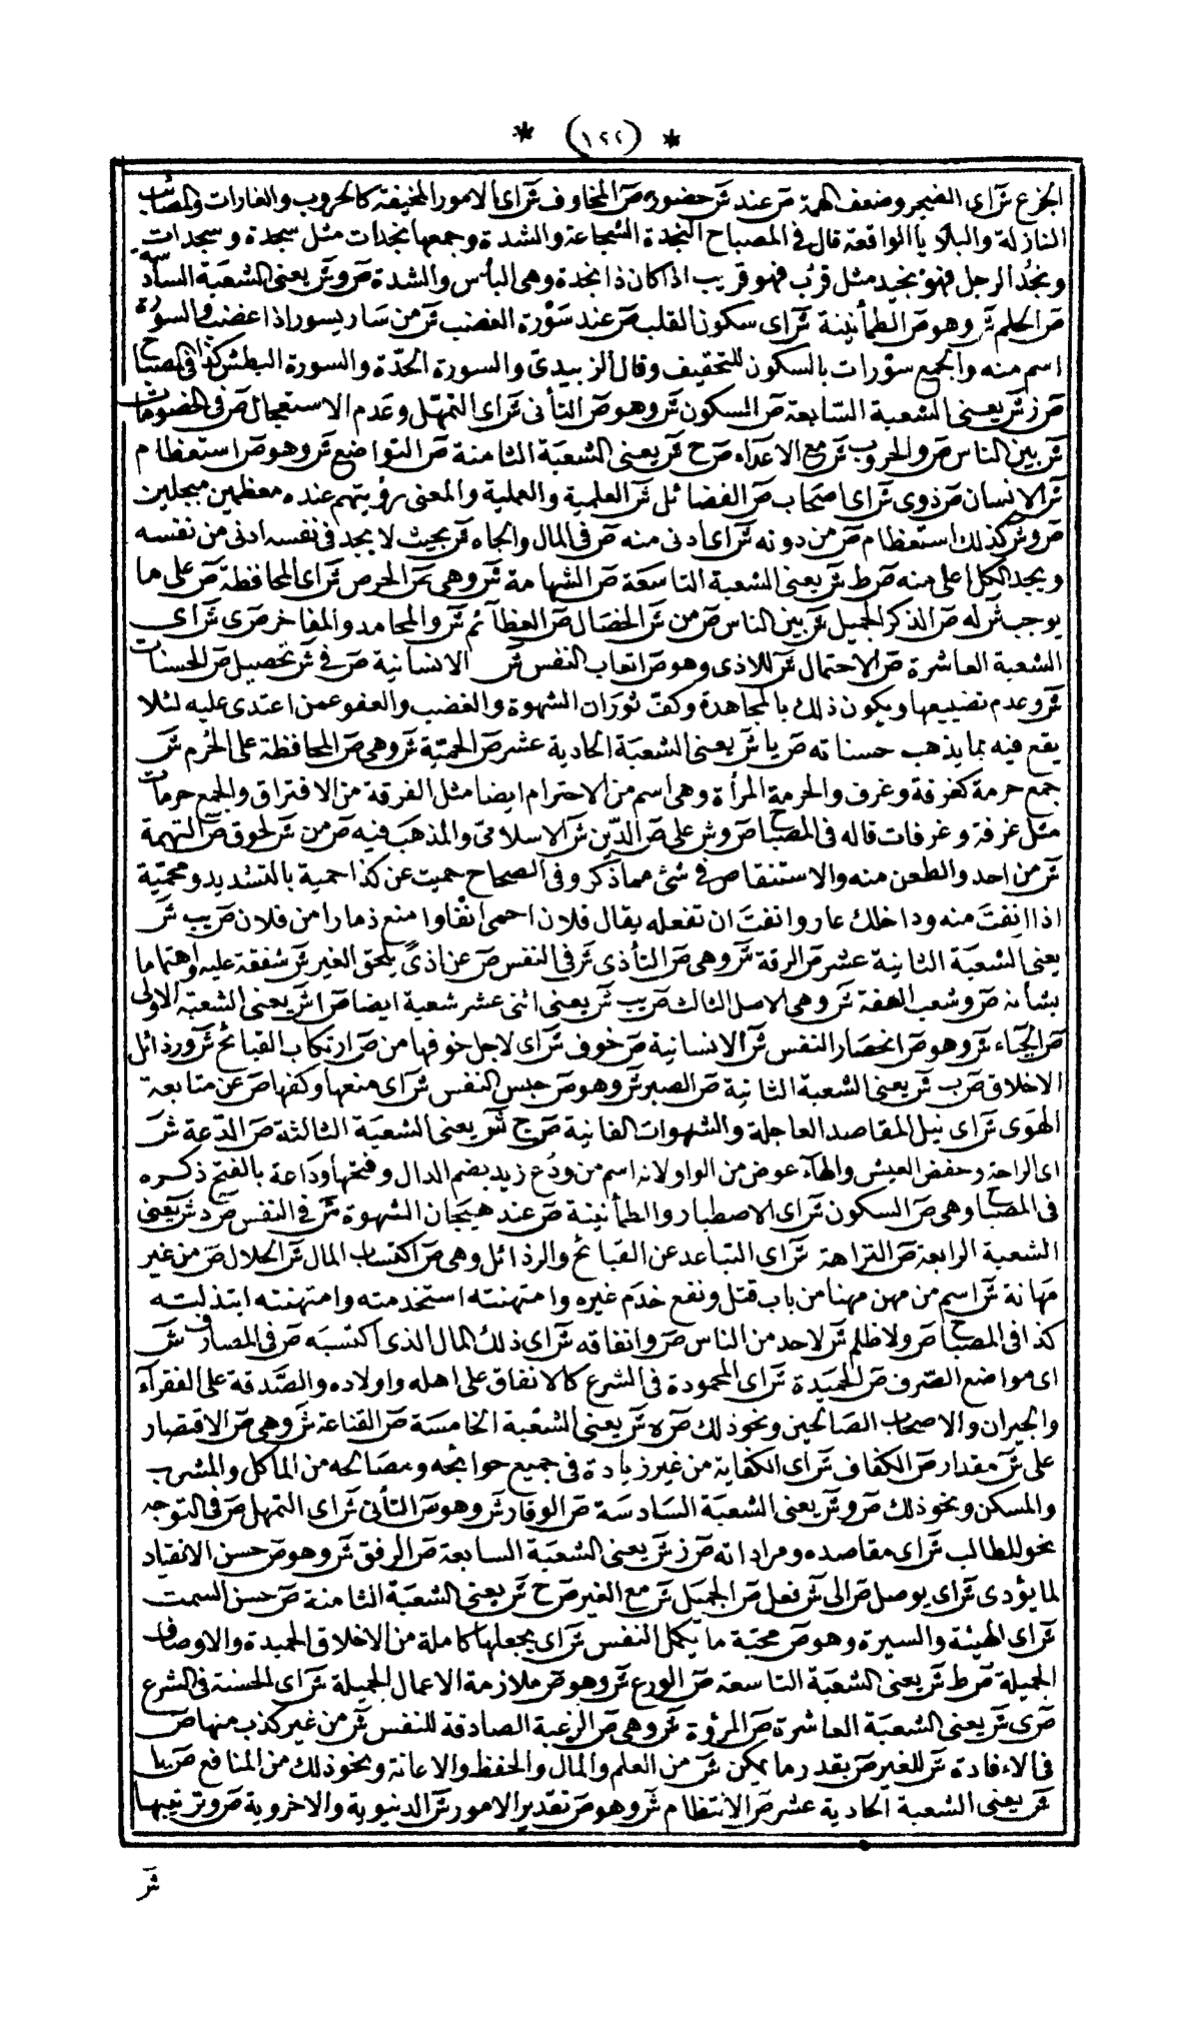 * (١٢٢) *
الجزع شر اى الضجر وضعف الهمة صر عند شر حضوره صر المخاوف شر اى الامور المخيفة كالحروب والغارات والمصائب
النازلة والبلايا الواقعة قال فى المصباح النجدة الشجاعة والشدة وجمعها نجدات مثل سجدة وسجدات
ونجُد الرجل فهو نجيد مثل قرُب فهو قريب اذا كان ذا نجدة وهى البأس والشدة صر و شر يعنى الشعبة السادسة
صر الحلم شر وهو صر الطمأنينة شر اى سكون القلب صر عند سَوْرة الغضب شر من سار يسور اذا غضب والسورة
اسم منه والجمع سوْرات بالسكون للتخفيف وقال الزبيدى والسورة الحدّة والسورة البطش كذا فى المصباح
صر ز شر يعنى الشعبة السّابعة صر السكون شر وهو صر التأنى شر اى التمهّل وعدم الاستعجال صر فى الخصومات
شر بين الناس صر والحروب شر مع الاعداء صر ح شر يعنى الشعبة الثامنة صر التواضع شر وهو صر استعظام
شر الانسان صر ذوى شر اى اصحاب صر الفضائل شر العلمية والعملية والمعنى رؤيتهم عنده معظمين مبجلين
صر و شر كذلك استعظام صر من دونه شر اى ادنى منه صر فى المال والجاه شر بحيث لا يجد فى نفسه ادنى من نفسه
ويجد الكل اعلى منه صر ط شر يعنى الشعبة التاسعة صر الشهامة شر وهى صر الحرص شر اى المحافظة صر على ما
يوجب شر له صر الذكر الجميل شر بين الناس صر من شر الخصال صر العظائم شر والمحامد والمفاخر صر ى شر اى
الشعبة العاشرة صر الاحتمال شر للاذى وهو صر اتعاب النفس شر الانسانية صر فى شر تحصيل صر الحسنات
شر وعدم تضييعها ويكون ذلك بالمجاهدة وكفّ ثوران الشهوة والغضب والعفو عمن اعتدى عليه لئلا
يقع فيه بما يذهب حسناته صر يا شر يعنى الشعبة الحادية عشر صر الحميّة شر وهى صر المحافظة على الحُرم شر
جمع حرمة كغرفة وغرف والحرمة المرأة وهى اسم من الاحترام ايضا مثل الفرقة من الافتراق والجمع حرمات
مثل غرفة وغرفات قاله فى المصباح صر و شر على صر الدّين شر الاسلامىّ والمذهب فيه صر من شر لحوق صر التهمة
شر من احد والطعن منه والاستنقاص فى شئ مما ذكر وفى الصحاح حميت عن كذا حمية بالتشديد ومحمية
اذا انفتَ منه وداخلك عار وانفتَ ان تفعله يقال فلان احمى انْفا وامنع ذمارا من فلان صر يب شر
يعنى الشعبة الثانية عشر صر الرقة شر وهى صر التأذى شر فى النفس صر عن اذىً يلحق الغير شر شفقة عليه واهتماما
بشأنه صر وشعب العفة شر وهى الاصل الثالث صر يب شر يعنى اثنى عشر شعبة ايضا صر ا شر يعنى الشعبة الاولى
صر الحياء شر وهو صر انحصار النفس شر الانسانية صر خوف شر اى لاجل خوفها من صر ارتكاب القبائح شر ورذائل
الاخلاق صر ب شر يعنى الشعبة الثانية صر الصبر شر وهو صر حبس النفس شر اى منعها وكفها صر عن متابعة
الهوى شر اى نيل المقاصد العاجلة والشهوات الفانية صر ج شر يعنى الشعبة الثالثة صر الدّعة شر
اى الراحة وخفض العيش والهآء عوض من الواو لانه اسم من ودُع زيد بضم الدال وفتحها وداعة بالفتح ذكره
فى المصباح وهى صر السكون شر اى الاصطبار والطمأنينة صر عند هيجان الشهوة شر فى النفس صر د شر يعنى
الشعبة الرابعة صر النزاهة شر اى التباعد عن القبائح والرذائل وهى صر اكتساب المال شر الحلال صر من غير
مَهانة شر اسم من مهن مهنا من باب قتل ونفع خدم غيره وامتهنته استخدمته وامتهنته ابتذلته
كذا فى المصباح صر ولا ظلم شر لاحد من الناس صر وانفاقه شر اى ذلك المال الذى اكتسبه صر فى المصارف شر
اى مواضع الصّرف صر الحميدة شر اى المحمودة فى الشرع كالانفاق على اهله واولاده والصّدقة على الفقرآء
والجيران والاصحاب الصّالحين ونحو ذلك صر ه شر يعنى الشعبة الخامسة صر القناعة شر وهى صر الاقتصار
على شر مقدار صر الكفاف شر اى الكفاية من غير زيادة فى جميع حوائجه ومصالحه من المأكل والمشرب
والمسكن ونحو ذلك صر و شر يعنى الشعبة السادسة صر الوقار شر وهو صر التأنى شر اى التمهل صر فى التوجه
نحو المطالب شر اى مقاصده ومراداته صر ز شر يعنى الشعبة السابعة صر الرفق شر وهو صر حسن الانقياد
لما يؤدى شر اى يوصل صر الى شر فعل صر الجميل شر مع الغير صر ح شر يعنى الشعبة الثامنة صر حسن السمت
شر اى الهيئة والسيرة وهو صر محبّة ما يكمل النفس شر اى يجعلها كاملة من الاخلاق الحميدة والاوصاف
الجميلة صر ط شر يعنى الشعبة التاسعة صر الورع شر وهو صر ملازمة الاعمال الجميلة شر اى الحسنة فى الشرع
صر ى شر يعنى الشعبة العاشرة صر المرؤة شر وهى صر الرغبة الصادقة للنفس شر من غير كذب منها صر
فى الافادة شر للغير صر بقدر ما يمكن شر من العلم والمال والحفظ والاعانة ونحو ذلك من المنافع صر يا
شر يعنى الشعبة الحادية عشر صر الانتظام شر وهو صر تقدير الامور شر الدنيوية والاخروية صر وترتيبها
شر